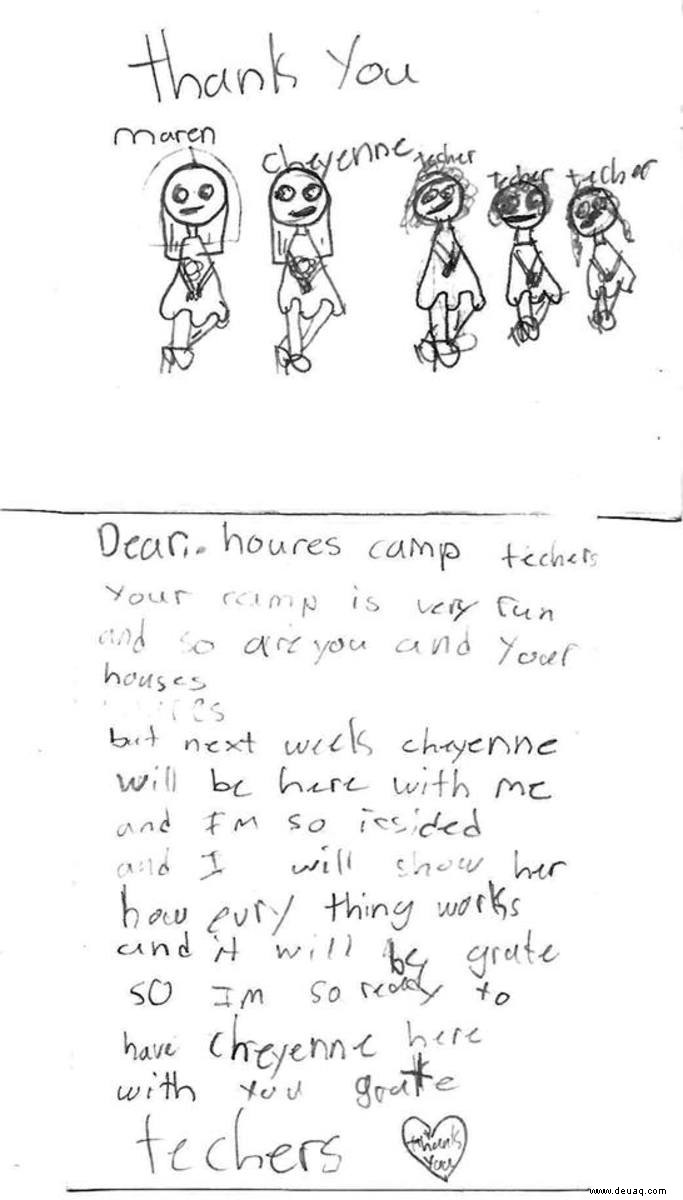 thank You
maren
cheyenne techer techer techer
Dear. houres camp techers
Your camp is very fun
and so are you and Your
houses
but next week cheyenne
will be here with me
and I'm so icsided
and I will show her
how evry thing works
and it will be grate
so Im so ready to
have cheyenne here
with you grate
techers
thank
You
www.deuaq.com